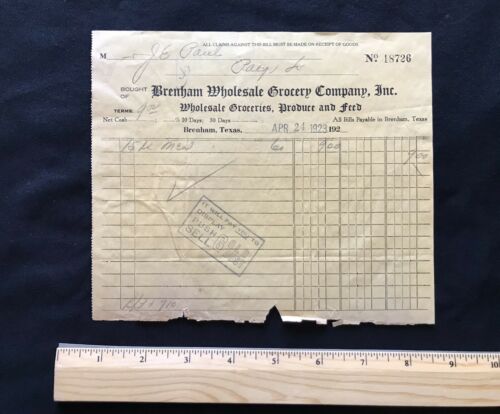 ALL CLAIMS AGAINST THIS BILL MUST BE MADE ON RECEIPT OF GOODS
M J C Paul
Nº 18726
BOUGHT OF
Brenham Wholesale Grocery Company, Inc.
Wholesale Groceries, Produce and Feed
TERMS
Net Cash % 10 Days, 30 Days All Bills Payable in Brenham, Texas
Brenham, Texas, APR 24 1923 192
15 60 9.00
9.00
IT WILL PAY YOU TO
DISPLAY
PUSH
SELL
1 2 3 4 5 6 7 8 9 10